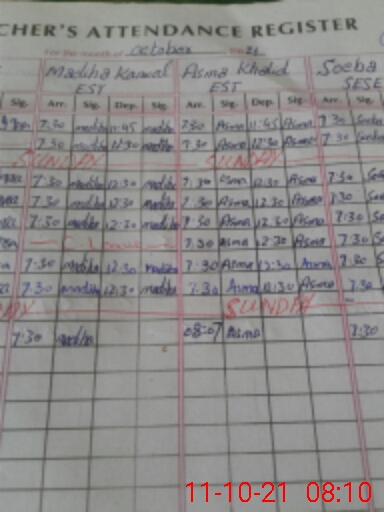 CHER'S ATTENDANCE REGISTER
For the month of October 21
Madiha Kanwal Asma Khalid Soeba
EST EST SESE
Sig. Arr. Sig. Dep. Sig. Arr. Sig. Dep. Sig. Arr. Sig.
7:30 madiha 11:45 madiha 7:30 Asma 11:45 Asma 7:30
7:30 madiha 12:30 madiha 7:30 Asma 12:30 Asma 7:30
SUNDAY SUNDAY
7:30 madiha 12:30 madiha 7:30 Asma 12:30 Asma 7:30
7:30 madiha 12:30 madiha 7:30 Asma 12:30 Asma 7:30
7:30 madiha 12:30 madiha 7:30 Asma 12:30 Asma 7:30
7:30 Asma 12:30 Asma 7:30
7:30 madiha 12:30 madiha 7:30 Asma 12:30 Asma 7:30
7:30 madiha 12:30 madiha 7:30 Asma 12:30 Asma 7:30
SUNDAY
7:30 madiha 08:07 Asma 7:30
11-10-21 08:10